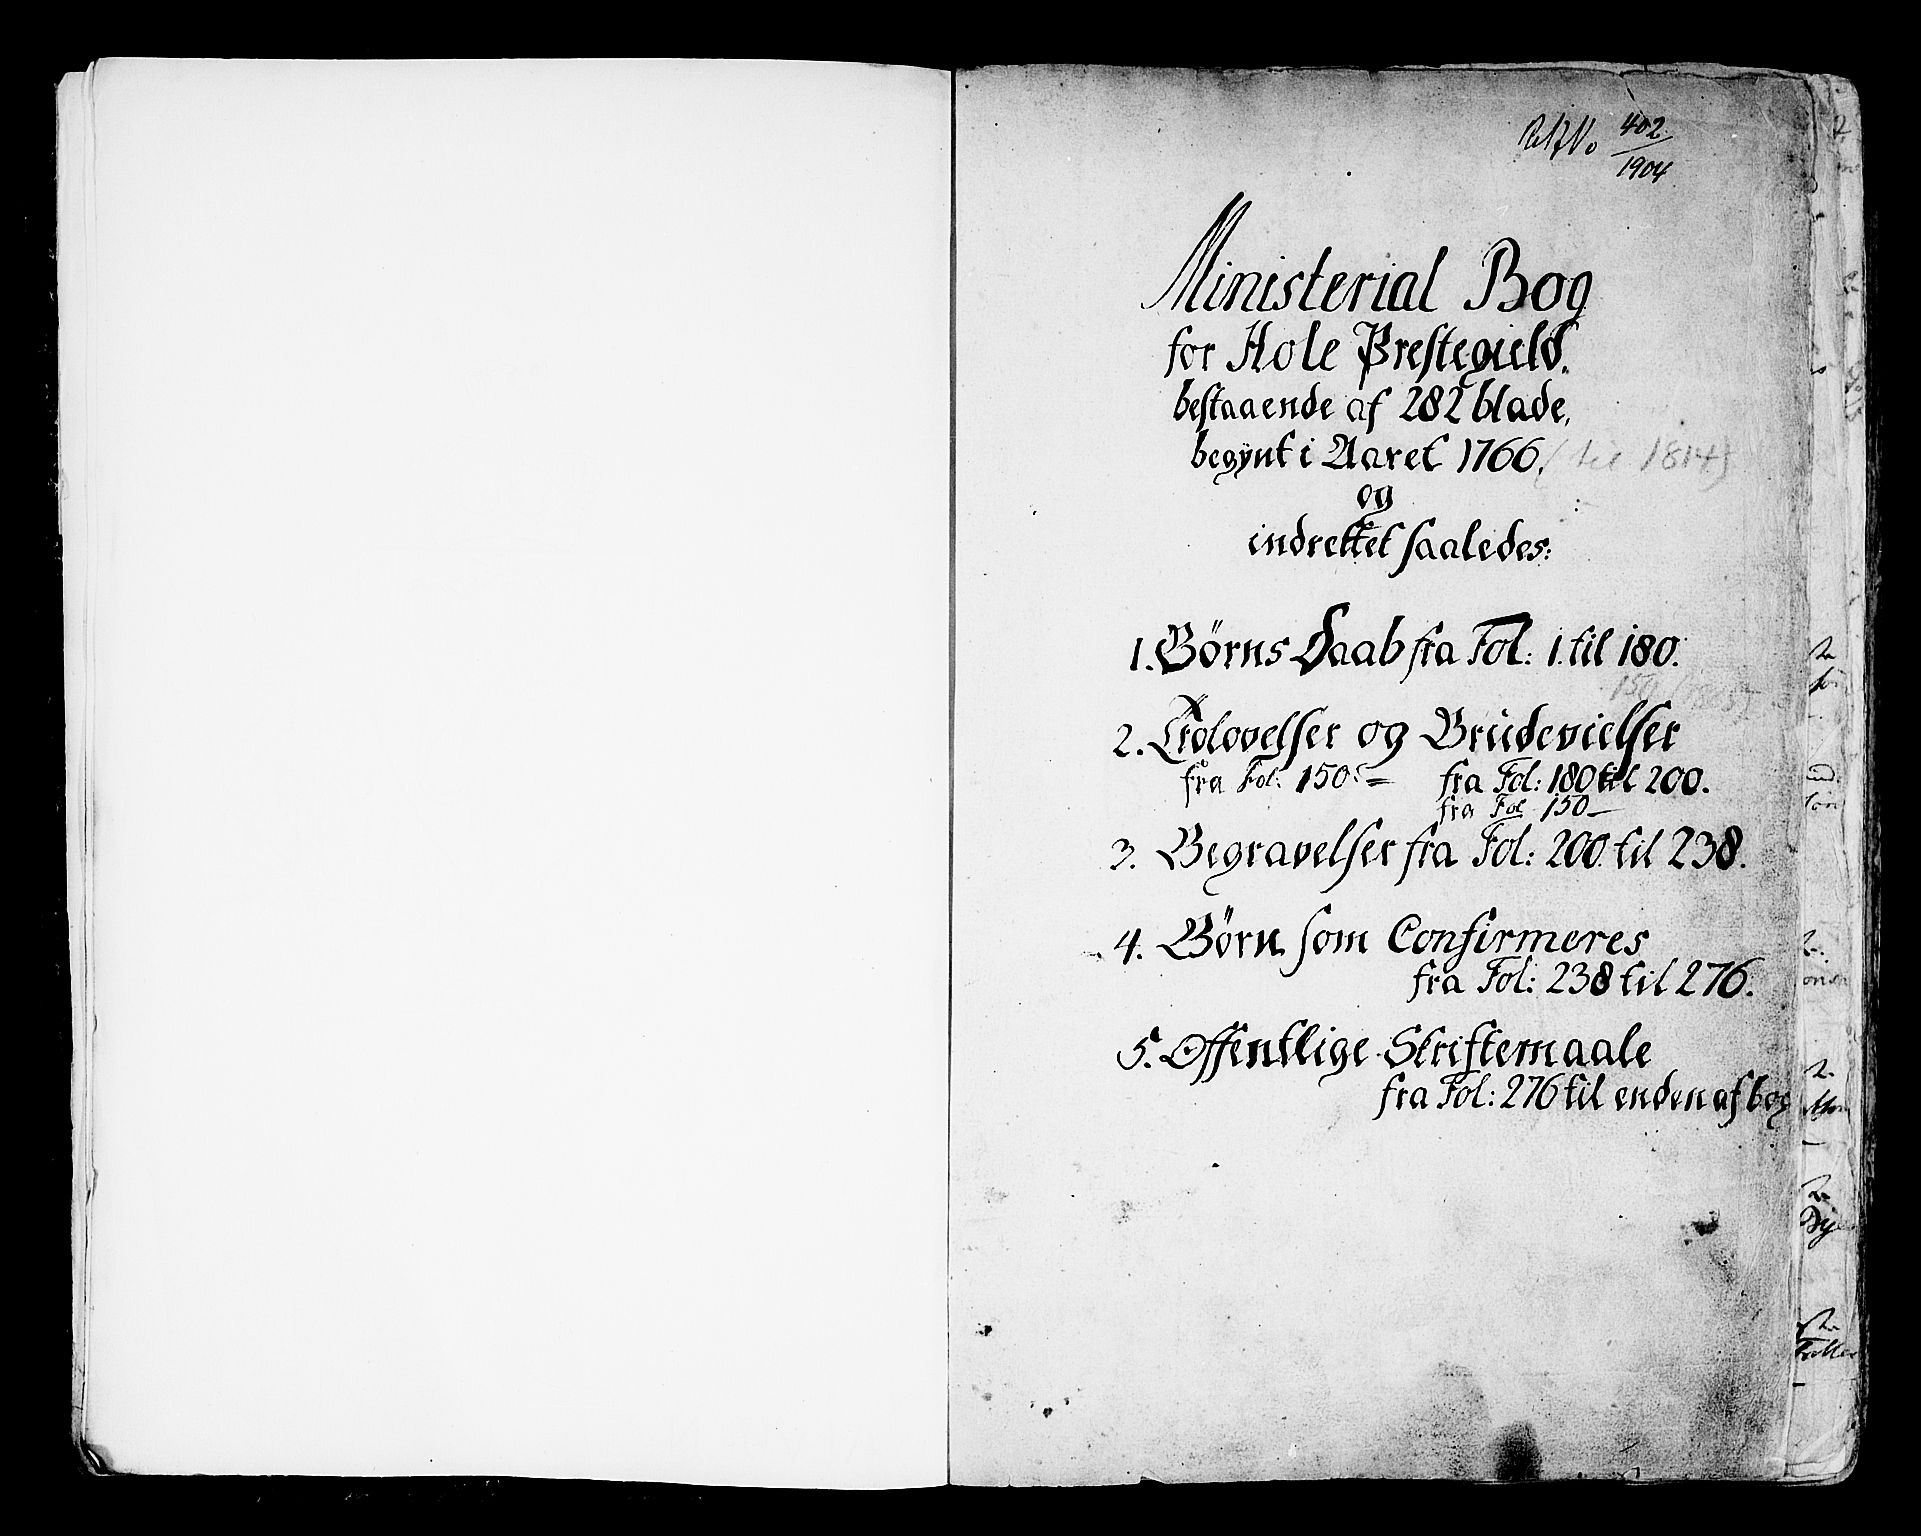 402
1904
Ministerial Bog
for Hole Prestegield.
bestaaende af 282 blade,
begÿnt i Aaret 1766. (til 1814)
og
indrettet saaledes:
1. Börns Daab fra Fol: 1. til 180.
2. Trolovelser og Brüdevielser
fra Fol: 150 = fra Fol: 180 til 200.
fra Fol 150 —
3. Begravelser fra Fol: 200. til 238.
4. Börn som Confirmeres
fra Fol: 238 til 276.
5. Offentlige Skriftemaale
fra Fol: 276 til enden af bog